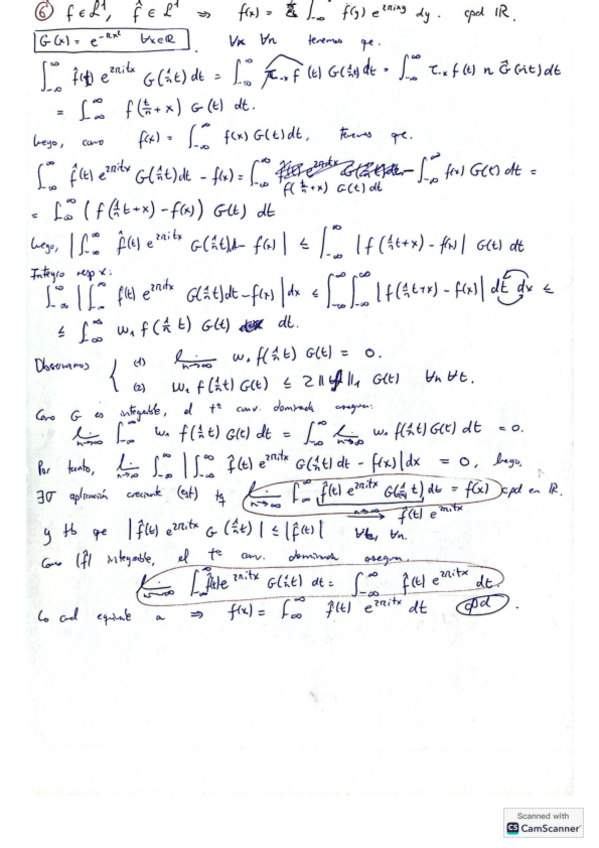 ⑥ f ∈ L¹, f̂ ∈ L¹ ⇒ f(x) = ∫_{-∞}^{∞} f̂(y) e^{2πixy} dy. cpd ℝ.
G(x) = e^{-πx²} ∀x∈ℝ. ∀x ∀n tenemos que.
∫_{-∞}^{∞} f̂(t) e^{2πitx} G(1/n t) dt = ∫_{-∞}^{∞} τ_{-x} f (t) G(1/n t) dt = ∫_{-∞}^{∞} τ_{-x} f(t) n Ĝ(nt) dt
= ∫_{-∞}^{∞} f(t/n + x) G(t) dt.
luego, como f(x) = ∫_{-∞}^{∞} f(x) G(t) dt, tenemos que.
∫_{-∞}^{∞} f̂(t) e^{2πitx} G(1/n t) dt - f(x) = ∫_{-∞}^{∞} f(t/n + x) G(t) dt - ∫_{-∞}^{∞} f(x) G(t) dt =
= ∫_{-∞}^{∞} (f(1/n t + x) - f(x)) G(t) dt
luego, |∫_{-∞}^{∞} f̂(t) e^{2πitx} G(1/n t) dt - f(x)| ≤ ∫_{-∞}^{∞} |f(1/n t + x) - f(x)| G(t) dt
Integro resp x:
∫_{-∞}^{∞} |∫_{-∞}^{∞} f̂(t) e^{2πitx} G(1/n t) dt - f(x)| dx ≤ ∫_{-∞}^{∞} ∫_{-∞}^{∞} |f(1/n t + x) - f(x)| dt dx ≤
≤ ∫_{-∞}^{∞} w₁ f(1/n t) G(t) dt.
Observamos { (1) lim_{n→∞} w₁ f(1/n t) G(t) = 0.
(2) w₁ f(1/n t) G(t) ≤ 2 ‖f‖₁ G(t) ∀n ∀t.
Como G es integrable, el t^e conv. dominada asegura:
lim_{n→∞} ∫_{-∞}^{∞} w₁ f(1/n t) G(t) dt = ∫_{-∞}^{∞} lim_{n→∞} w₁ f(1/n t) G(t) dt = 0.
Por tanto, lim_{n→∞} ∫_{-∞}^{∞} |∫_{-∞}^{∞} f̂(t) e^{2πitx} G(1/n t) dt - f(x)| dx = 0, luego,
∃σ aplicación creciente (est) tq lim_{n→∞} ∫_{-∞}^{∞} f̂(t) e^{2πitx} G( t) dt = f(x) cpd en ℝ.
n→∞ f̂(t) e^{2πitx}
y tb que |f̂(t) e^{2πitx} G(1/n t)| ≤ |f̂(t)| ∀t, ∀n.
Como |f̂| integrable, el t^e conv. dominada asegura.
lim_{n→∞} ∫_{-∞}^{∞} f̂(t) e^{2πitx} G(1/n t) dt = ∫_{-∞}^{∞} f̂(t) e^{2πitx} dt.
lo cual equivale a ⇒ f(x) = ∫_{-∞}^{∞} f̂(t) e^{2πitx} dt cpd.
Scanned with
CS CamScanner